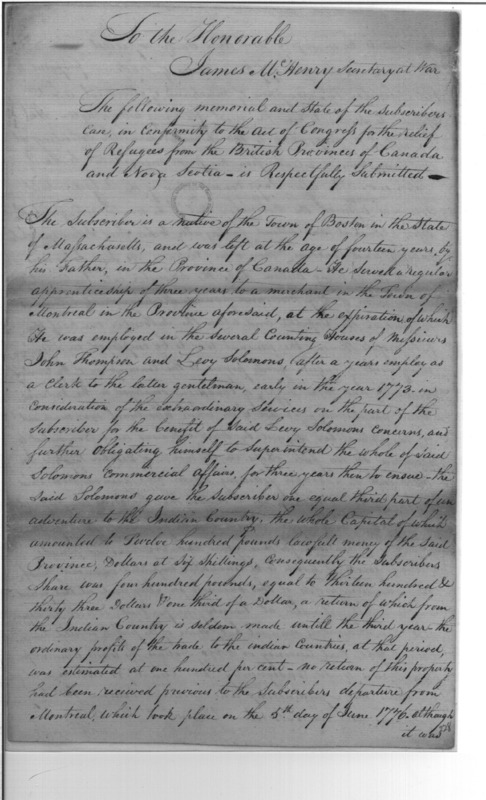 To the Honorable
James Mc Henry Secretary at War
The following memorial and State of the Subscribers
Case, in Conformity to the Act of Congress for the relief
of Refugees from the British Provinces of Canada
and Nova Scotia - is Respectfully Submitted -
The Subscriber is a native of the Town of Boston in the State
of Massachusetts, and was left at the age of fourteen years, by
his Father, in the Province of Canada - He Served a regular
apprenticeship of three years to a merchant in the Town of
Montreal in the Province aforesaid, at the expiration of which
He was employed in the Several Counting Houses of Messieurs
John Thompson and Levy Solomons, (after a years employ as
a Clerk to the latter gentelman, early in the year 1773 - in
Consideration of the extraordinary Services on the part of the
Subscriber for the benefit of Said Levy Solomons Concerns, and
further Obligating himself to Superintend the whole of Said
Solomons Commercial affairs, for three years then to ensue - the
Said Solomons gave the Subscriber one equal third part of an
adventure to the Indian Country, the whole Capital of which
amounted to Twelve hundred pounds lawfull money of the Said
Province, Dollars at Six Shillings, Consequently the Subscribers
Share was four hundred pounds, equal to Thirteen hundred &
thirty three Dollars & one third of a Dollar, a return of which from
the Indian Country is Seldom made untill the third year - the
ordinary profits of the trade to the indian Countries, at that period,
was estimated at one hundred per cent - no return of this property
had been received previous to the Subscribers departure from
Montreal, which took place on the 5th day of June 1776 - although
it was